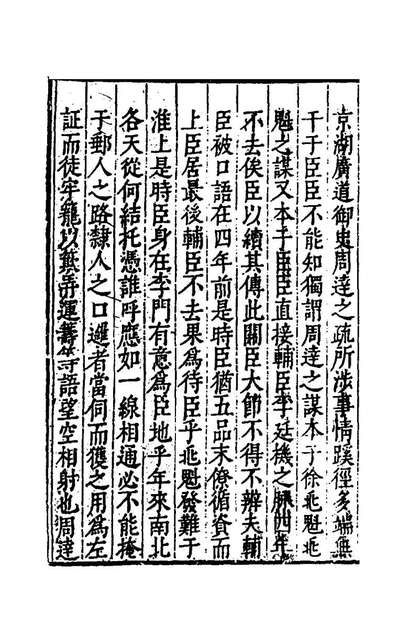 京湖廣道御史周達之疏所涉事情蹊徑多端無
干于臣臣不能知獨謂周達之謀本于徐兆魁兆
魁之謀又本于臣臣直接輔臣李廷機之脉四年
不去俟臣以續其傳此關臣大節不得不辨夫輔
臣被口語在四年前是時臣猶五品末僚循資而
上臣居最後輔臣不去果爲待臣乎兆魁發難于
淮上是時臣身在李門有意爲臣地乎年來南北
各天從何結托憑誰呼應如一線相通必不能掩
于郵人之路隸人之口邏者當伺而獲之用爲左
証而徒牢籠以無運籌等語望空相射也周達